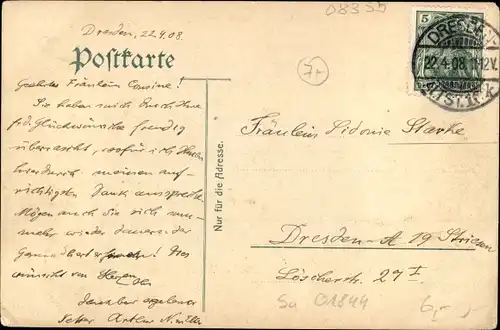 08355
Dresden, 22.4.08.
Postkarte
Geehrtes Fräulein Cousine!
Sie haben mich durch Ihre
frdl. Glückwünsche freudig
überrascht, wofür ich Ihnen
hierdurch meinen auf-
richtigsten Dank ausspreche.
Mögen auch Sie sich nun-
mehr wieder dauernder
Gesundheit erfreuen! Dies
wünscht von Herzen Ihr
dankbar ergebener
Vetter Arthur
Nur für die Adresse.
7,-
5
DRESDEN-
22.4.08. 11-12V.
Fräulein Lidonie Starke
Dresden-A 19 Striesen
Löscherstr. 27 I
Sa 01844
6,-